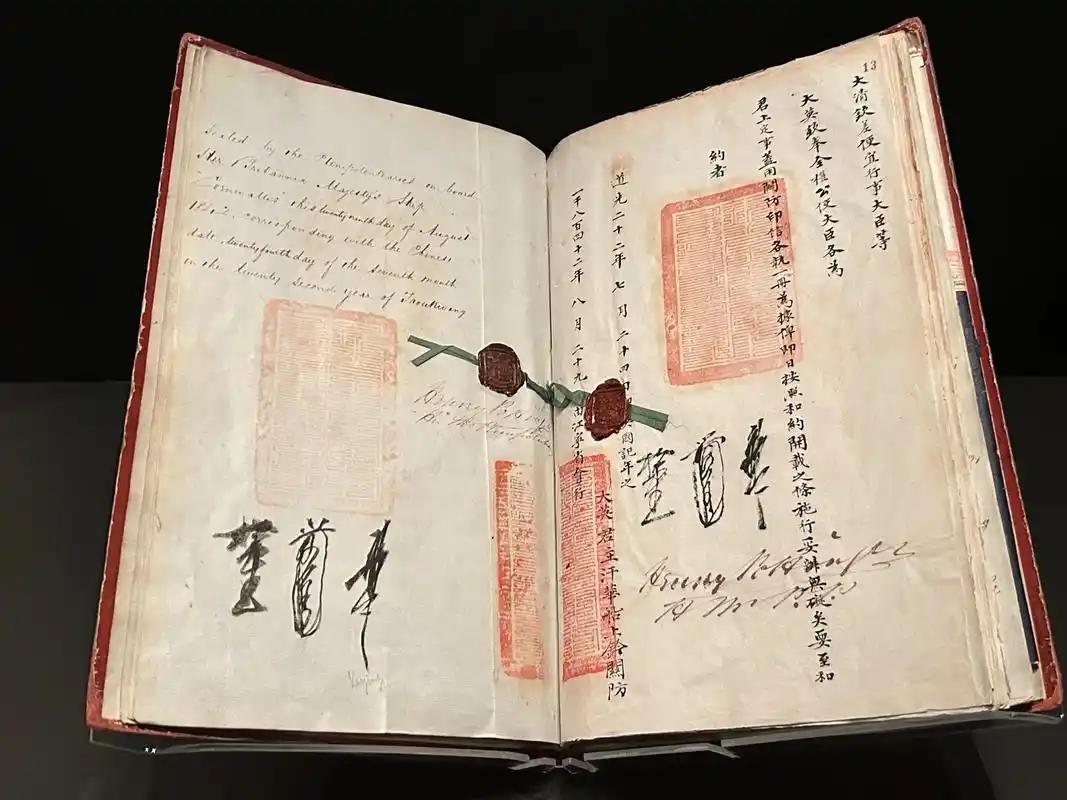 Sealed by the Plenipotentiaries on board
Her Britannic Majesty's Ship
Cornwallis this twenty ninth day of August
1842, corresponding with the Chinese
date, twenty fourth day of the seventh month
in the twenty second year of Taoukwang
Henry
Nanjing
13
大清欽差便宜行事大臣等
大英欽奉全權公使大臣各為
君上定事蓋用關防印信各執一冊為據俾即日按照和約開載之條施行妥辦無礙矣要至和
約者
道光二十二年七月二十四日即英國記年之
一千八百四十二年八月二十九日由江寧省會行
大英君主汗華船上鈐關防
Henry Pottinger